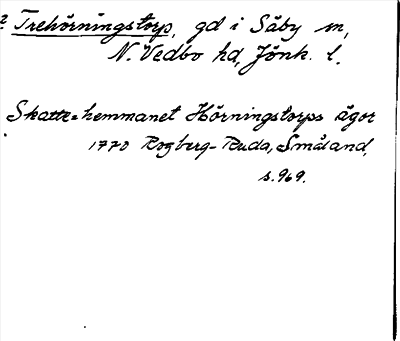 ? Trehörningstorp, gd i Säby sn,
N. Vedbo hd, Jönk. l.
Skatte-hemmanet Hörningstorps ägor
1770 Rogberg-Ruda, Småland,
s. 969.